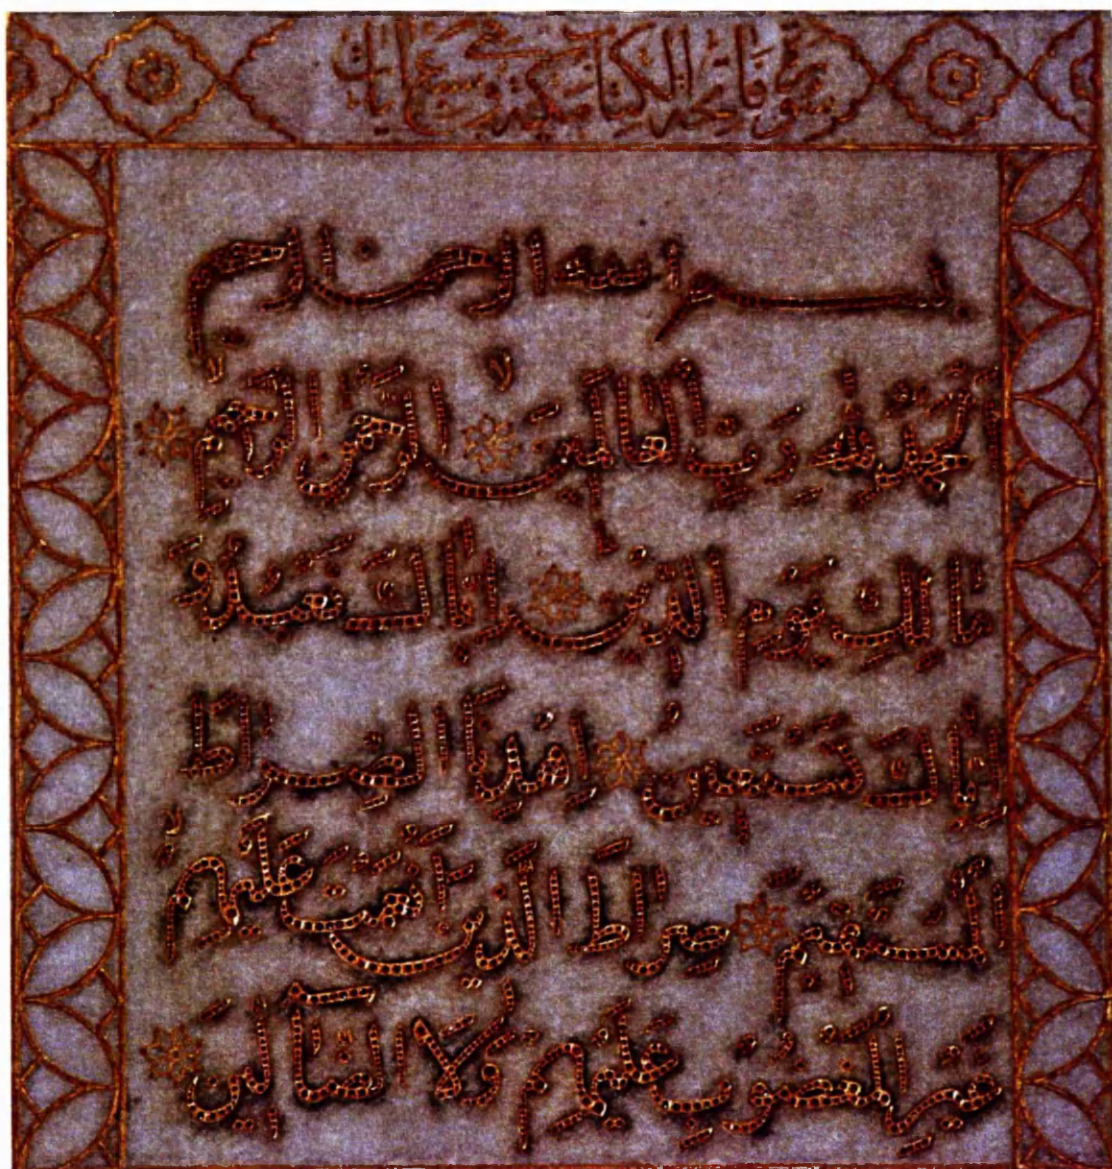 سورة فاتحة الكتاب مكية وهي سبع آيات
بسم الله الرحمن الرحيم
اَلْحَمْدُ لِلَّهِ رَبِّ الْعَالَمِينَ الرَّحْمَنِ الرَّحِيمِ
مَالِكِ يَوْمِ الدِّينِ إِيَّاكَ نَعْبُدُ وَ
إِيَّاكَ نَسْتَعِينُ اِهْدِنَا الصِّرَاطَ
الْمُسْتَقِيمَ صِرَاطَ الَّذِينَ أَنْعَمْتَ عَلَيْهِمْ
غَيْرِ الْمَغْضُوبِ عَلَيْهِمْ وَلَا الضَّالِّينَ